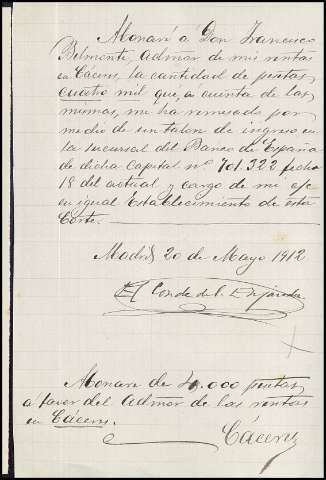 Abonaré a Don Francisco
Belmonte, Admor de mis rentas
en Cáceres, la cantidad de pesetas
cuatro mil que, a cuenta de las
mismas, me ha remesado por
medio de un talon de ingreso en
la sucursal del Banco de España
de dicha Capital nº 701.322 fecha
18 del actual y cargo de mi cje
en igual Establecimiento de esta
Corte.
Madrid 20 de Mayo 1912
El Conde del
Abonaré de 4.000 pesetas,
a favor del Admor de las rentas
en Cáceres.
Cáceres